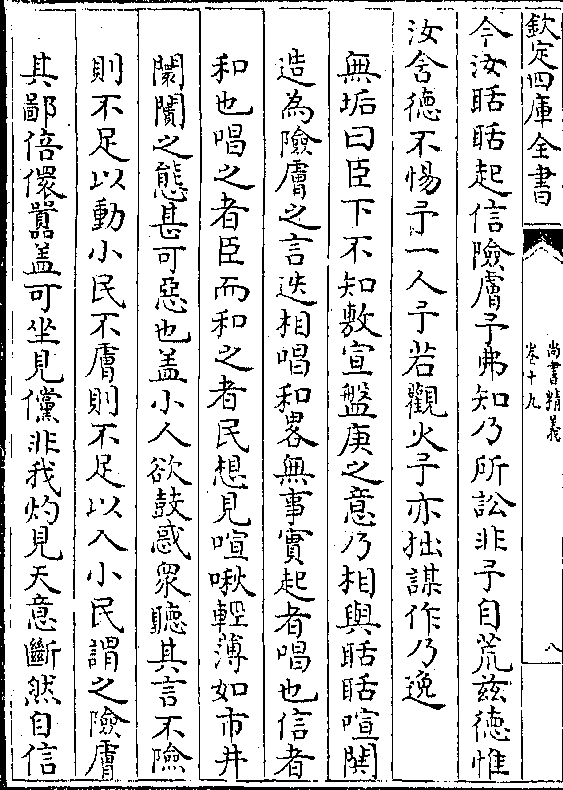 欽定四庫全書
尚書精義
卷十九
八
今汝聒聒起信險膚予弗知乃所訟非予自荒茲德惟
汝含德不惕予一人予若觀火予亦拙謀作乃逸
無垢曰臣下不知敷宣盤庚之意乃相與聒聒喧鬨
造為險膚之言迭相唱和畧無事實起者唱也信者
和也唱之者臣而和之者民想見喧啾輕薄如市井
闤闠之態甚可惡也盖小人欲鼓惑衆聽其言不險
則不足以動小民不膚則不足以入小民謂之險膚
其鄙倍儇囂盖可坐見儻非我灼見天意斷然自信